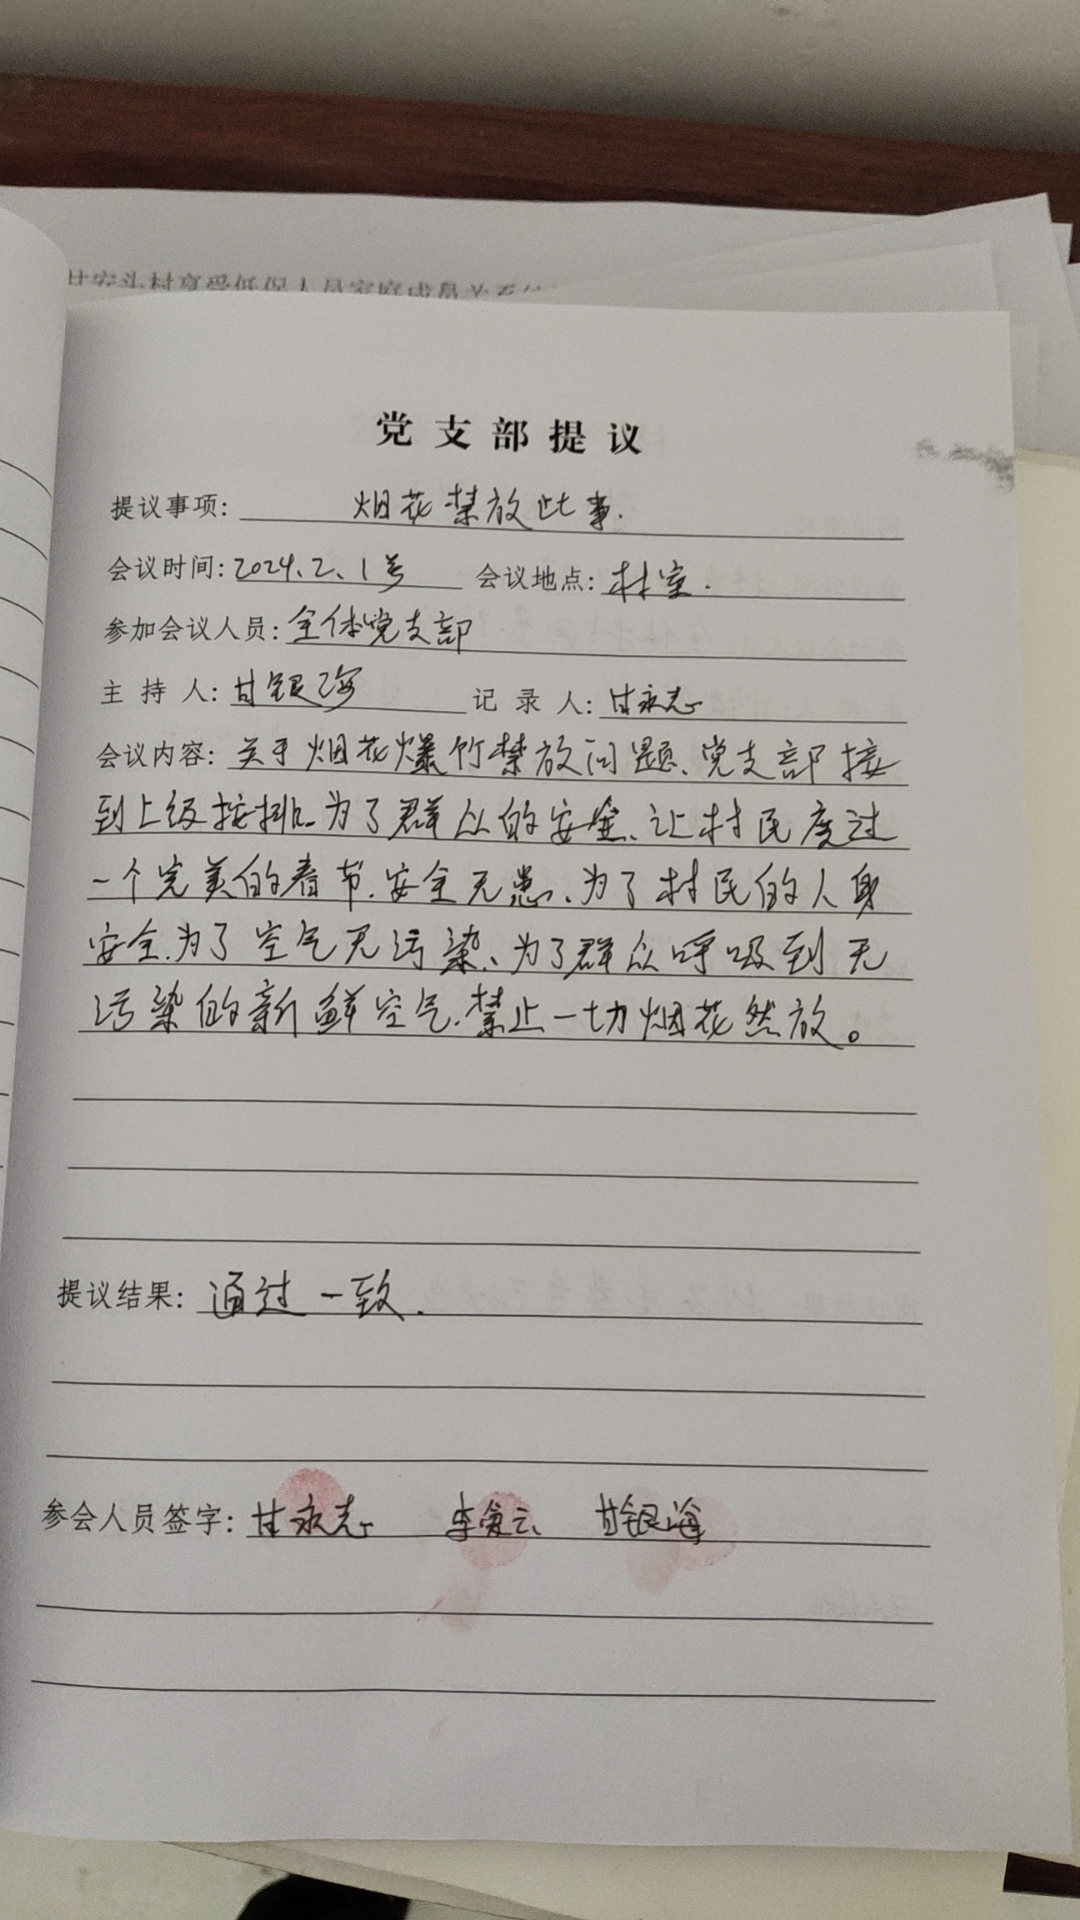 甘安头村享受低保人员家庭成员关系
党支部提议
提议事项: 烟花禁放此事.
会议时间: 2024.2.1号 会议地点: 村室.
参加会议人员: 全体党支部
主持人: 甘银海 记录人: 甘永志
会议内容: 关于烟花爆竹禁放问题、党支部接
到上级按排.为了群众的安全、让村民度过
一个完美的春节.安全无患、为了村民的人身
安全.为了空气无污染、为了群众呼吸到无
污染的新鲜空气.禁止一切烟花然放。
提议结果: 通过一致.
参会人员签字: 甘永志 李 云 甘银海